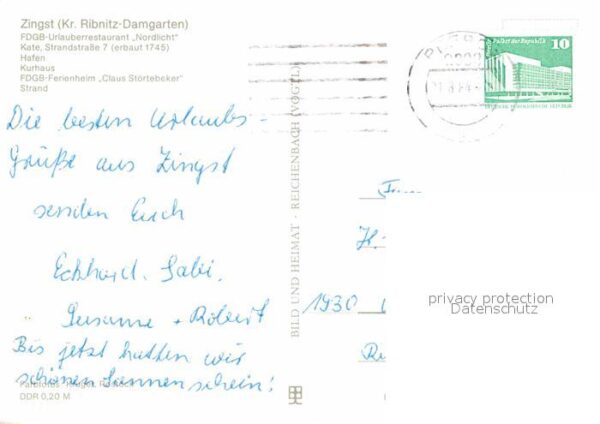 Zingst (Kr. Ribnitz-Damgarten)
FDGB-Urlauberrestaurant „Nordlicht"
Kate, Strandstraße 7 (erbaut 1745)
Hafen
Kurhaus
FDGB-Ferienheim „Claus Störtebeker"
Strand
Die besten Urlaubs-
Grüße aus Zingst
senden Euch
Eckhard, Gabi,
Susanne + Robert
Bis jetzt hatten wir
schönen Sonnenschein!
DDR 0,20 M
BILD UND HEIMAT · REICHENBACH (VOGTL)
Palast der Republik
10
1930
privacy protection
Datenschutz